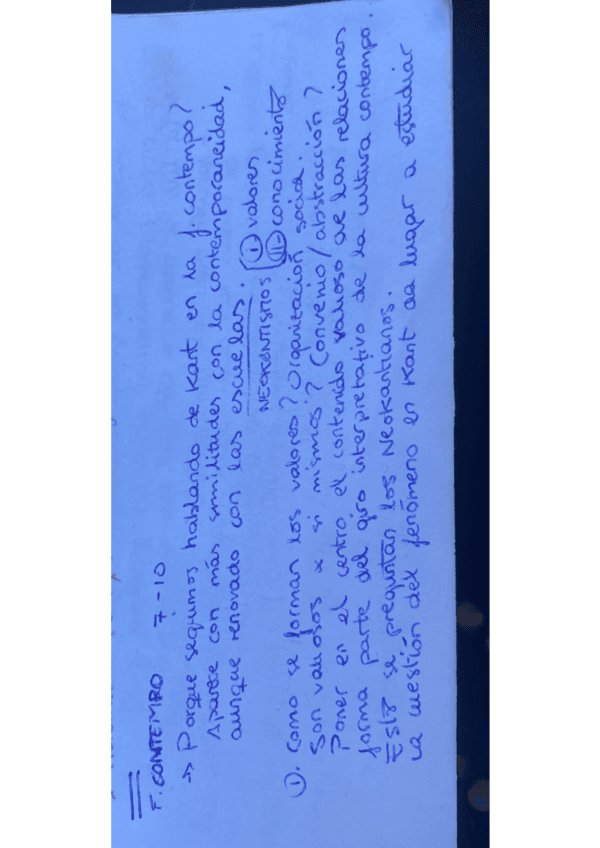 F. CONTEMPO 7-10
→ Porque seguimos hablando de Kant en la f. contempo?
Aparece con más similitudes con la contemporaneidad,
aunque renovado con las escuelas.
NEOKANTISMOS
I valores
II conocimiento
I. Como se forman los valores? Organización social.
Son valiosos x si mismos? Convenio/abstracción?
Poner en el centro el contenido valioso de las relaciones
forma parte del giro interpretativo de la cultura contempo.
Esto se preguntan los Neokantianos.
La cuestión del fenómeno en Kant da lugar a estudiar